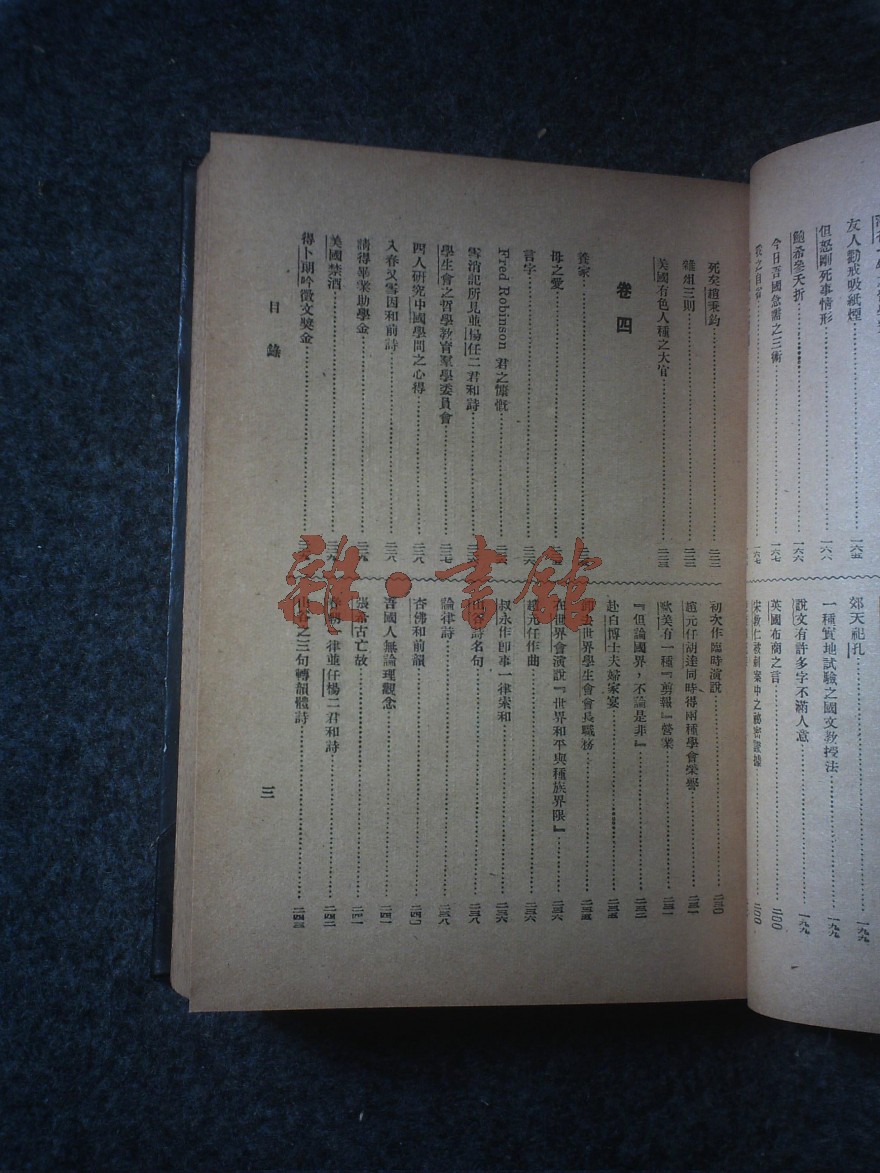 友人勸戒吸紙煙
一六五
但怒剛死事情形
一六六
鮑希參夭折
一六六
今日吾國急需之三術
一六七
我之自省
一六七
郊天祀孔
一九九
一種實地試驗之國文教授法
一九九
說文有許多字不滿人意
一九九
英國布商之言
二〇〇
宋教仁被刺案中之秘密證據
二〇〇
死矣趙秉鈞
二三二
雜俎三則
二三二
美國有色人種之大官
二三三
卷四
養家
母之愛
言字
二三六
Fred Robinson 君之慷慨
雪消記所見並楊任二君和詩
學生會之哲學教育羣學委員會
二三七
四人研究中國學問之心得
二三八
入春又雪因和前詩
二三八
請得畢業助學金
美國禁酒
得卜朗吟徵文獎金
初次作臨時演說
二三〇
趙元任胡達同時得兩種學會榮譽
二三一
歐美有一種『剪報』營業
二三一
『但論國界，不論是非』
二三二
赴白博士夫婦家宴
二三五
世界學生會會長職務
二三五
在世界會演說『世界和平與種族界限』
二三六
趙元任作曲
二三六
叔永作卽事一律索和
二三六
山谷詩名句
二三八
論律詩
二三八
杏佛和前韻
二四〇
吾國人無論理觀念
二四一
張希古亡故
二四一
春朝一律並任楊二君和詩
二四二
山谷之三句轉韻體詩
二四三
目錄
三
雜·書館